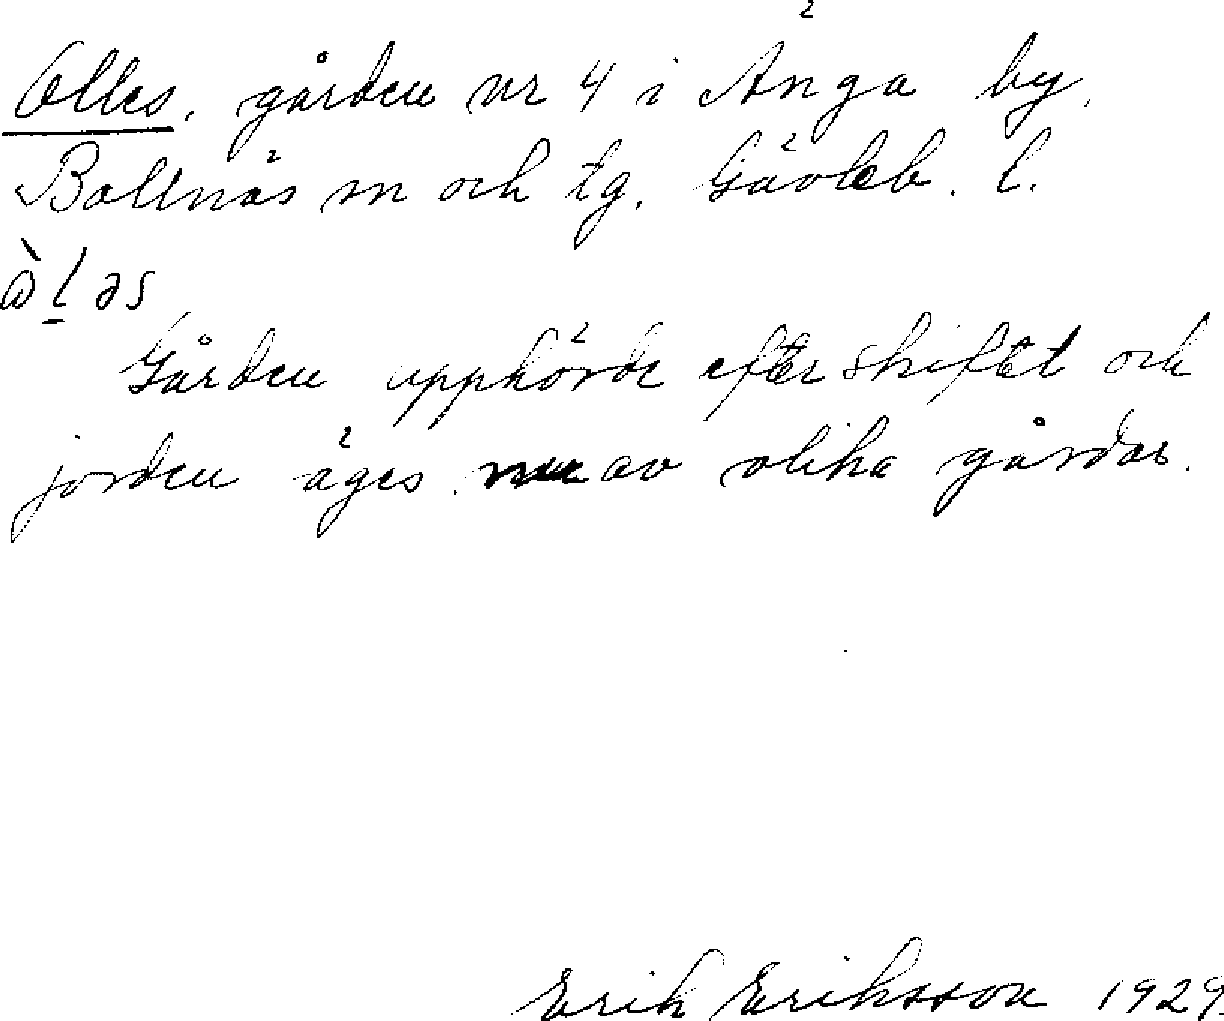 Olles, gården nr 4 i Änga by,
Bollnäs sn och tg, Gävleb. l.
ò̀l̲əs
Gården upphörde efter skiftet och
jorden äges nu av olika gårdar.
Erik Eriksson 1929.